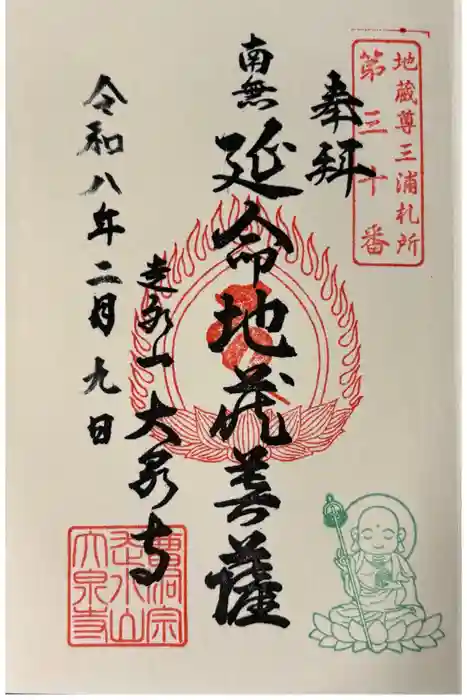 地蔵尊三浦札所
第三十番
奉拝
南無
延命地蔵菩薩
走水山 大泉寺
令和八年二月九日
曹洞宗
走水山
大泉寺